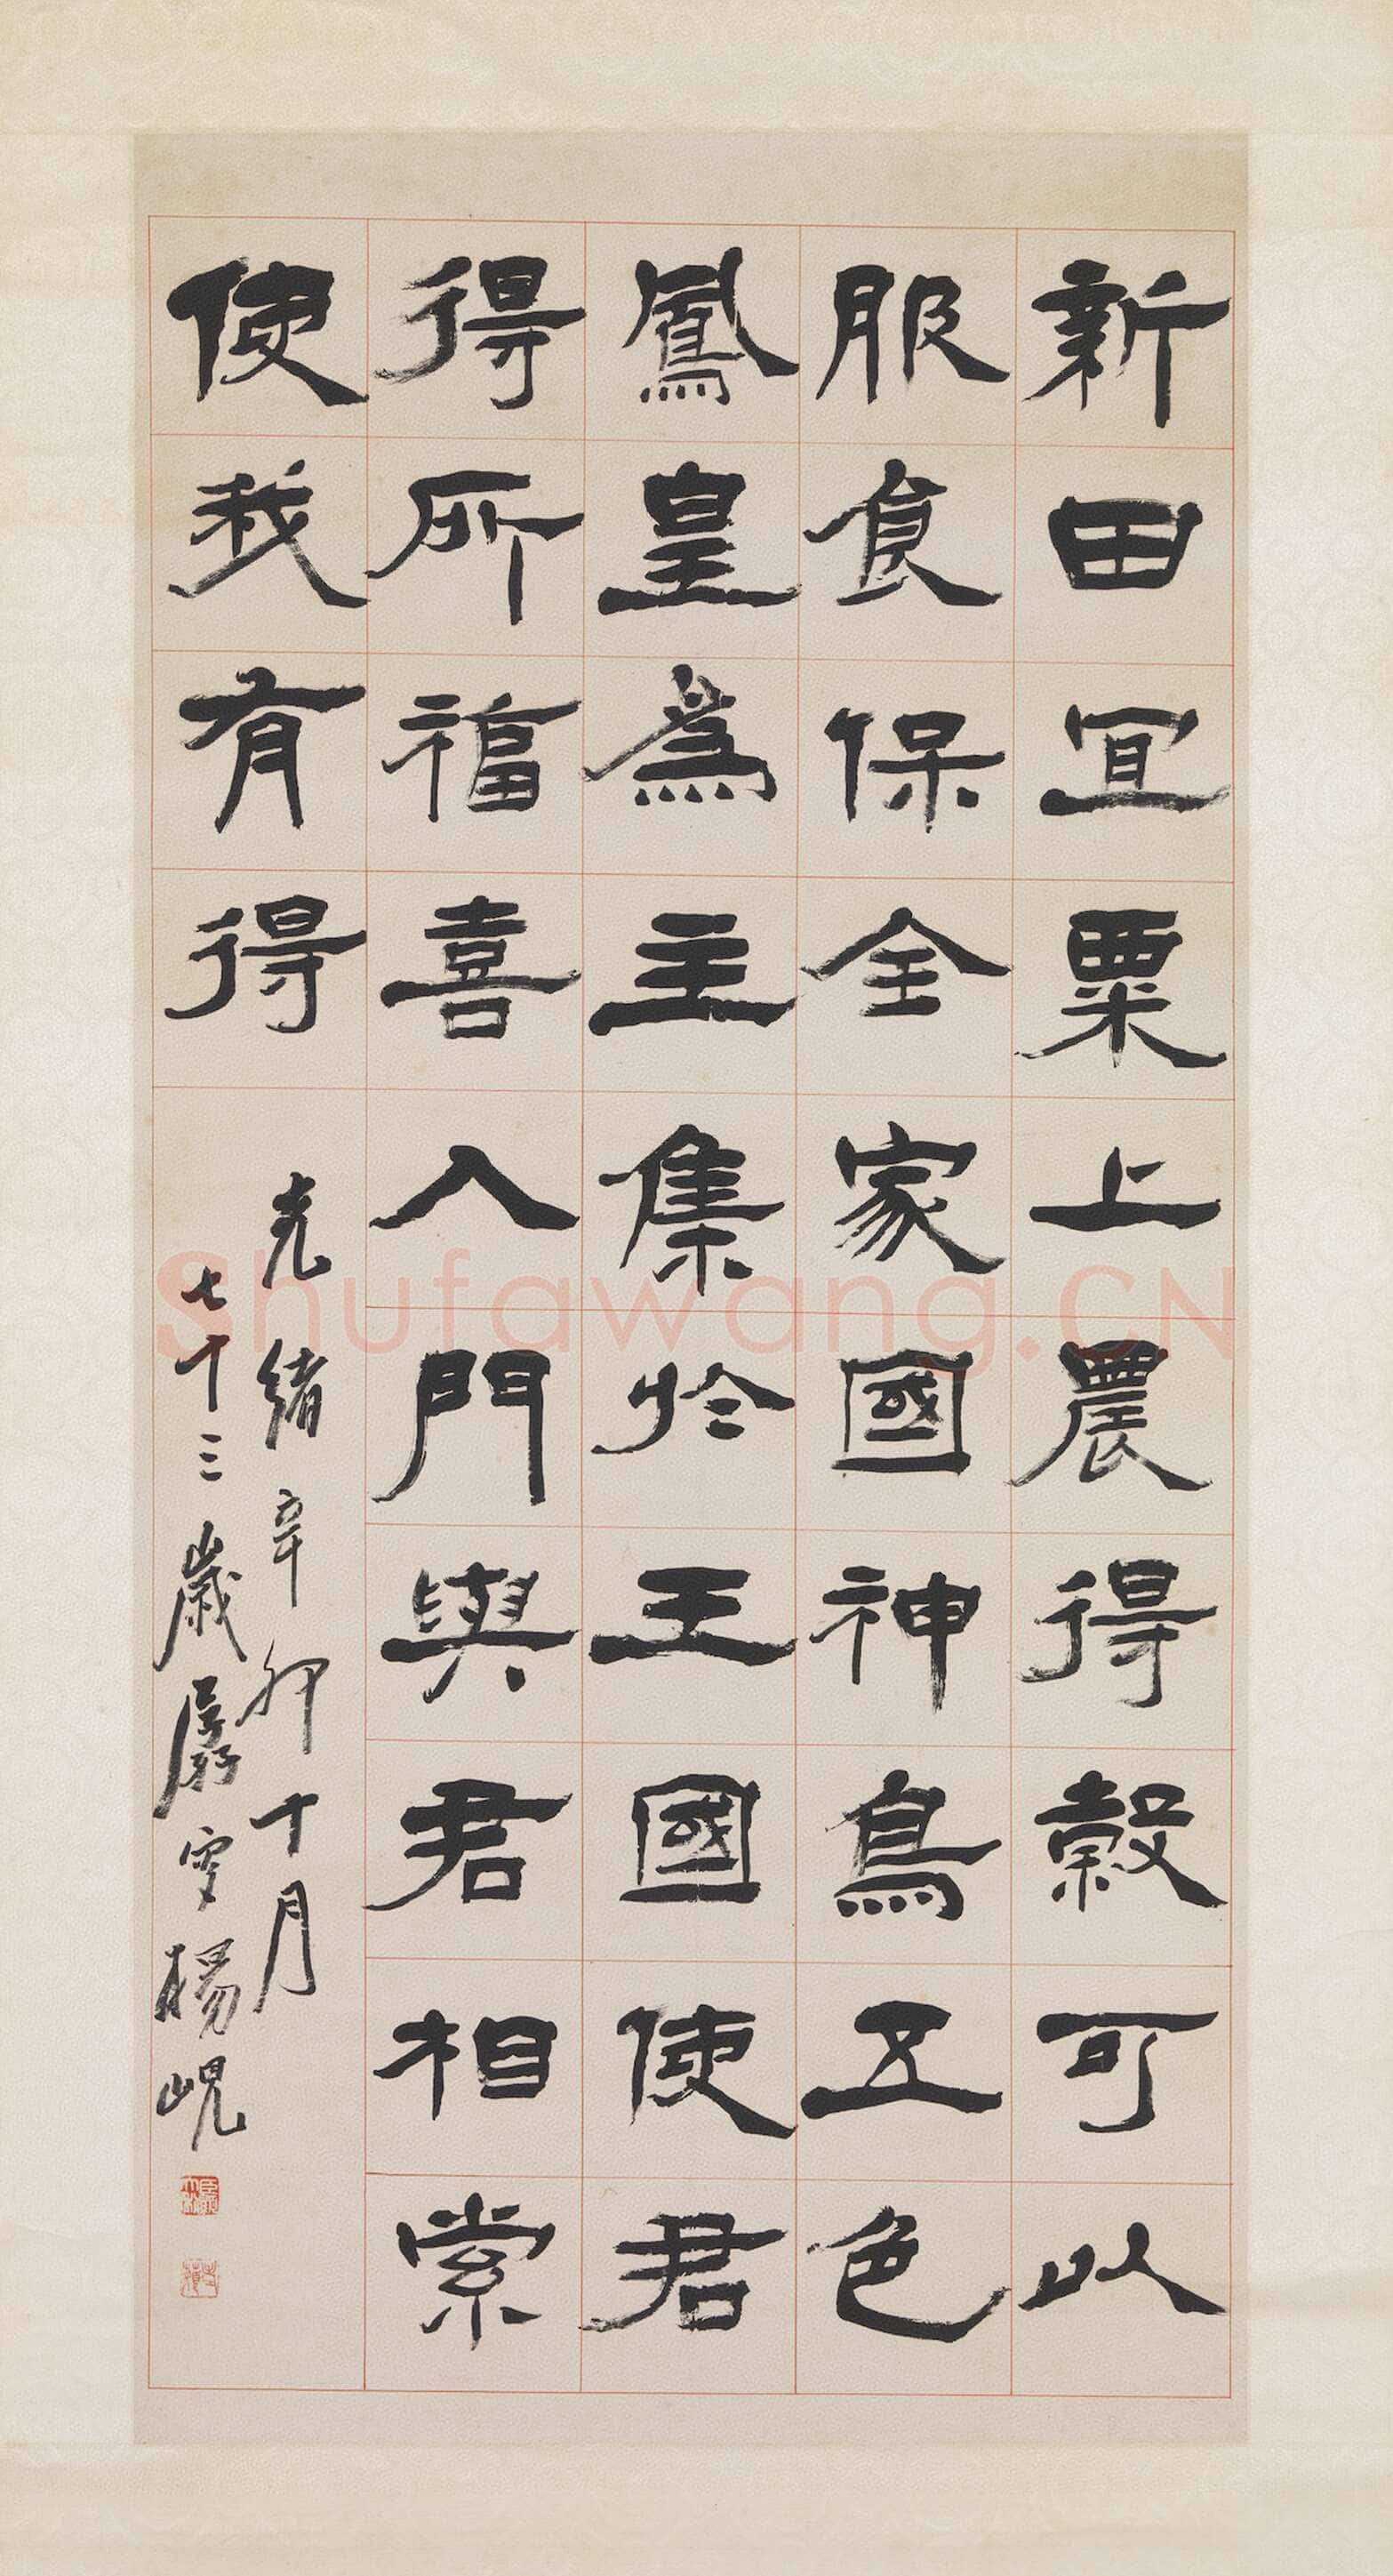 新田宜粟上農得穀可以
服食保全家國神鳥五色
鳳皇為主集於王國使君
得所福喜入門與君相索
使我有得
光緒辛卯十月
七十三歲孱叟楊峴
Shufawang.CN